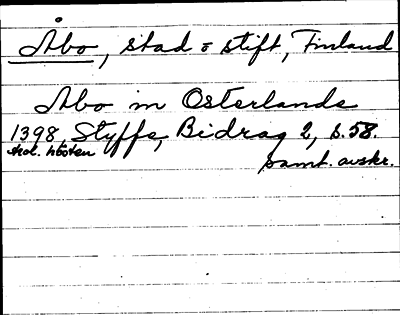 Åbo, stad o stift, Finland
Abo in Osterlande
1398 Styffe, Bidrag 2, s. 58.
hösten
samt. avskr.